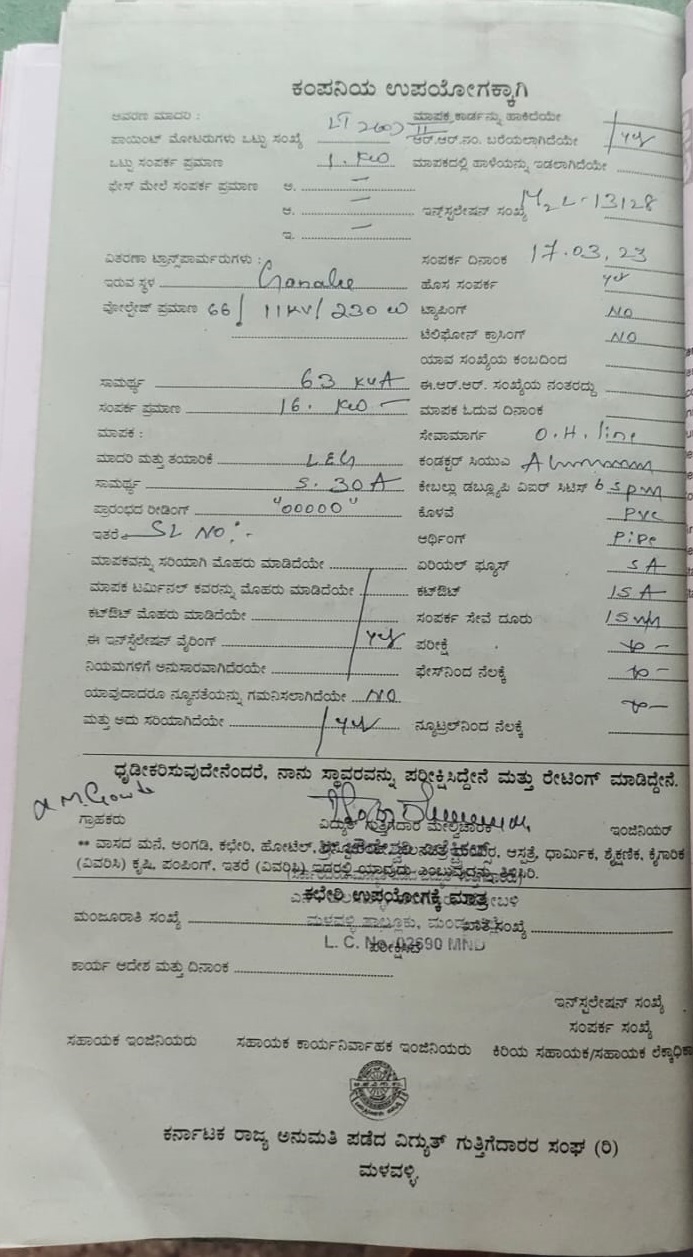 ಕಂಪನಿಯ ಉಪಯೋಗಕ್ಕಾಗಿ
ಆವರಣ ಮಾದರಿ : LT 2 ಮಾಪಕ ಕಾರ್ಡನ್ನು ಹಾಕಿದೆಯೇ
ಪಾಯಿಂಟ್ ಮೋಟರುಗಳು ಒಟ್ಟು ಸಂಖ್ಯೆ ಆರ್.ಆರ್.ನಂ. ಬರೆಯಲಾಗಿದೆಯೇ yes
ಒಟ್ಟು ಸಂಪರ್ಕ ಪ್ರಮಾಣ 1. KW ಮಾಪಕದಲ್ಲಿ ಹಾಳೆಯನ್ನು ಇಡಲಾಗಿದೆಯೇ
ಫೇಸ್ ಮೇಲೆ ಸಂಪರ್ಕ ಪ್ರಮಾಣ ಅ. —
ಆ. — ಇನ್ಸ್‌ಟಲೇಷನ್ ಸಂಖ್ಯೆ M2L-13128
ಇ. —
ವಿತರಣಾ ಟ್ರಾನ್ಸ್‌ಪಾರ್ಮರುಗಳು : ಸಂಪರ್ಕ ದಿನಾಂಕ 17.03.23
ಇರುವ ಸ್ಥಳ ಹೊಸ ಸಂಪರ್ಕ yes
ವೋಲ್ಟೇಜ್ ಪ್ರಮಾಣ 66/ 11KV/ 230 ಟ್ಯಾಪಿಂಗ್ NO
ಟೆಲಿಫೋನ್ ಕ್ರಾಸಿಂಗ್ NO
ಯಾವ ಸಂಖ್ಯೆಯ ಕಂಬದಿಂದ
ಸಾಮರ್ಥ್ಯ 63 KVA ಈ.ಆರ್.ಆರ್. ಸಂಖ್ಯೆಯ ನಂತರದ್ದು
ಸಂಪರ್ಕ ಪ್ರಮಾಣ 16. KW — ಮಾಪಕ ಓದುವ ದಿನಾಂಕ
ಮಾಪಕ : ಸೇವಾಮಾರ್ಗ O.H. line
ಮಾದರಿ ಮತ್ತು ತಯಾರಿಕೆ L&G ಕಂಡಕ್ಟರ್ ಸಿಯುಎ
ಸಾಮರ್ಥ್ಯ 5. 30A ಕೇಬಲ್ಲು ಡಬ್ಲ್ಯೂಪಿ ವಿಐರ್ ಸಿಟಿಸ್
ಪ್ರಾರಂಭದ ರೀಡಿಂಗ್ "00000" ಕೊಳವೆ PVC
ಇತರೆ SL NO:- ಆರ್ಥಿಂಗ್ Pipe
ಮಾಪಕವನ್ನು ಸರಿಯಾಗಿ ಮೊಹರು ಮಾಡಿದೆಯೇ ಏರಿಯಲ್ ಫ್ಯೂಸ್ 5 A
ಮಾಪಕ ಟರ್ಮಿನಲ್ ಕವರನ್ನು ಮೊಹರು ಮಾಡಿದೆಯೇ ಕಟ್‌ಔಟ್ 15 A
ಕಟ್‌ಔಟ್ ಮೊಹರು ಮಾಡಿದೆಯೇ ಸಂಪರ್ಕ ಸೇವೆ ದೂರು
ಈ ಇನ್‌ಸ್ಟಲೇಷನ್ ವೈರಿಂಗ್ yes ಪರೀಕ್ಷೆ
ನಿಯಮಗಳಿಗೆ ಅನುಸಾರವಾಗಿದೆರಯೇ ಫೇಸ್‌ನಿಂದ ನೆಲಕ್ಕೆ
ಯಾವುದಾದರೂ ನ್ಯೂನತೆಯನ್ನು ಗಮನಿಸಲಾಗಿದೆಯೇ NO
ಮತ್ತು ಅದು ಸರಿಯಾಗಿದೆಯೇ yes ನ್ಯೂಟ್ರಲ್‌ನಿಂದ ನೆಲಕ್ಕೆ
ಧೃಡೀಕರಿಸುವುದೇನೆಂದರೆ, ನಾನು ಸ್ಥಾವರವನ್ನು ಪರೀಕ್ಷಿಸಿದ್ದೇನೆ ಮತ್ತು ರೇಟಿಂಗ್ ಮಾಡಿದ್ದೇನೆ.
ಗ್ರಾಹಕರು ವಿದ್ಯುತ್ ಗುತ್ತಿಗೆದಾರ ಮೇಲ್ವಿಚಾರಕ ಇಂಜಿನಿಯರ್
** ವಾಸದ ಮನೆ, ಅಂಗಡಿ, ಕಛೇರಿ, ಹೋಟೆಲ್, ಆಸ್ಪತ್ರೆ, ಧಾರ್ಮಿಕ, ಶೈಕ್ಷಣಿಕ, ಕೈಗಾರಿಕ
(ವಿವರಿಸಿ) ಕೃಷಿ, ಪಂಪಿಂಗ್, ಇತರೆ (ವಿವರಿಸಿ) ಇದರಲ್ಲಿ ಯಾವುದು ಎಂಬುವುದನ್ನು ತಿಳಿಸಿರಿ.
ಕಛೇರಿ ಉಪಯೋಗಕ್ಕೆ ಮಾತ್ರ
ಮಂಜೂರಾತಿ ಸಂಖ್ಯೆ ಖಾತೆ ಸಂಖ್ಯೆ
L. C. No. 02690 MND
ಪರೀಕ್ಷಿಸಿದೆ
ಕಾರ್ಯ ಆದೇಶ ಮತ್ತು ದಿನಾಂಕ
ಇನ್‌ಸ್ಟಲೇಷನ್ ಸಂಖ್ಯೆ
ಸಂಪರ್ಕ ಸಂಖ್ಯೆ
ಸಹಾಯಕ ಇಂಜಿನಿಯರು ಸಹಾಯಕ ಕಾರ್ಯನಿರ್ವಾಹಕ ಇಂಜಿನಿಯರು ಕಿರಿಯ ಸಹಾಯಕ/ಸಹಾಯಕ
ಕರ್ನಾಟಕ ರಾಜ್ಯ ಅನುಮತಿ ಪಡೆದ ವಿದ್ಯುತ್ ಗುತ್ತಿಗೆದಾರರ ಸಂಘ (ರಿ)
ಮಳವಳ್ಳಿ.